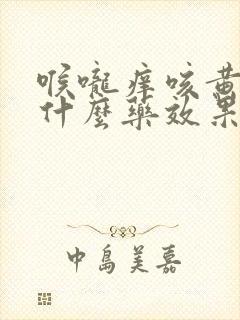 喉嚨痒咳黄
什麼藥效果
中島美嘉